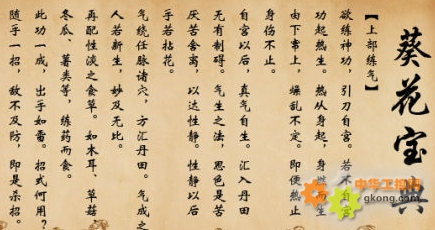 葵花宝典
【上部练气】
欲练神功，引刀自宫。若不自宫
功起热生。热从身起，身燃而生
由下窜上，燥乱不定。即便热止
身伤不止。
自宫以后，真气自生。汇入丹田
无有制碍。气生之法，思色是苦
厌苦舍离，以达性静。性静以后
手若拈花。
气绕任脉诸穴，方汇丹田。气成之
人若新生，妙及无比。
再配性淡之食草。如木耳、草菇、
冬瓜、薯类等，练药而食。
此功一成，出手如雷。招式何用？
随手一招，敌不及防，即是杀招。
中华工控网
gkong.com